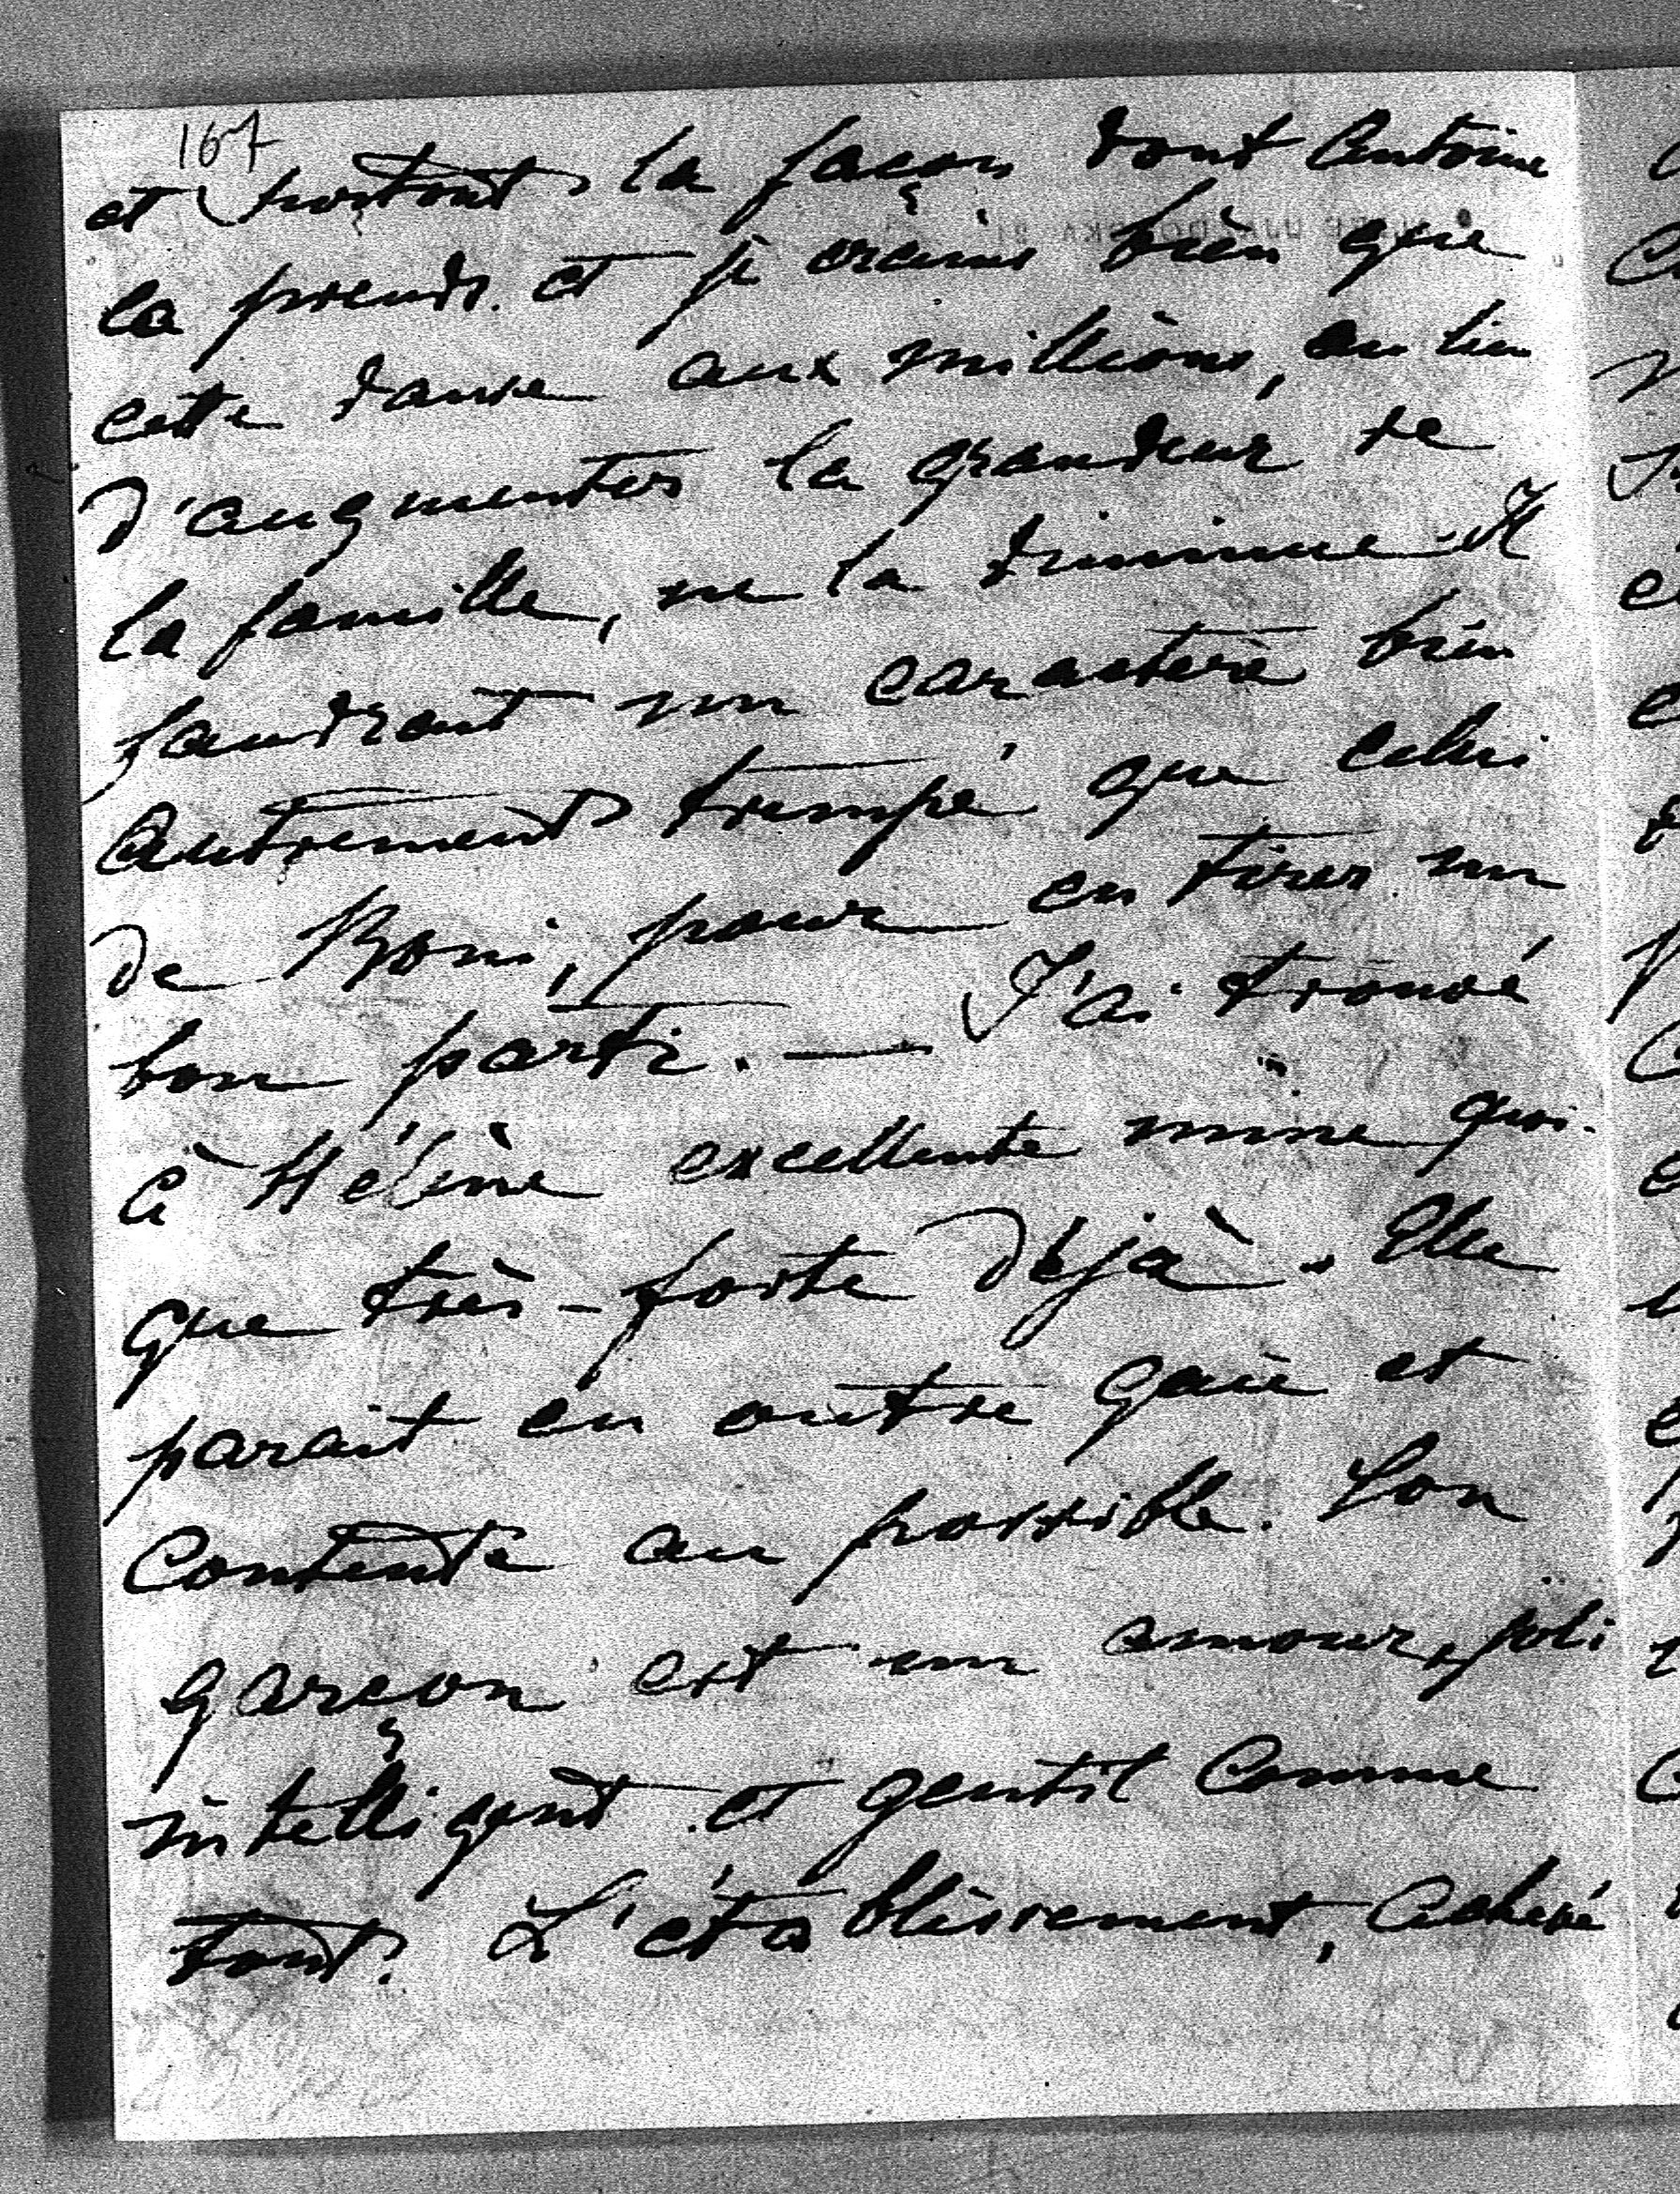 167
et surtout la façon dont Antoine
la prends. et je crains bien que
cette danse aux millions, au lieu
d'augmenter la grandeur de
la famille, ne la diminue. Il
faudrait un caractère bien
autrement trempé que celui
de Boni, pour en tirer un
bon parti. — J'ai trouvé
à Hélène excellente mine quoi-
que très-forte déjà. Elle
parait en outre gaie et
contente au possible. Son
garçon est un amour, joli
intelligent et gentil comme
tout. L'établissement, achevé